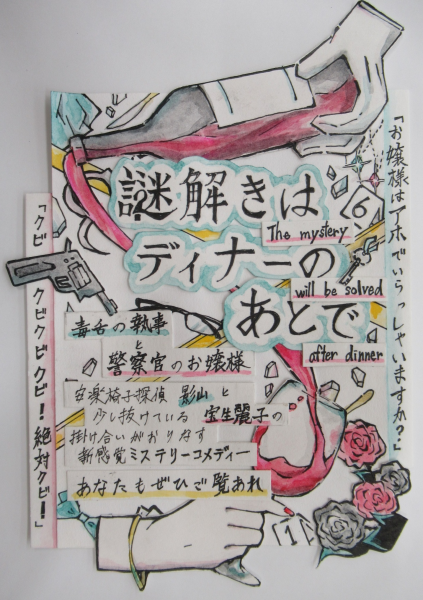 「お嬢様はアホでいらっしゃいますか？」
謎解きは
ディナーの
あとで
6
The mystery
will be solved
after dinner
「クビ！クビクビクビ！絶対クビ！」
毒舌の執事
と
警察官のお嬢様
安楽椅子探偵 影山と
少し抜けている 宝生麗子の
掛け合いがおりなす
新感覚ミステリーコメディー
あなたもぜひご覧あれ
1